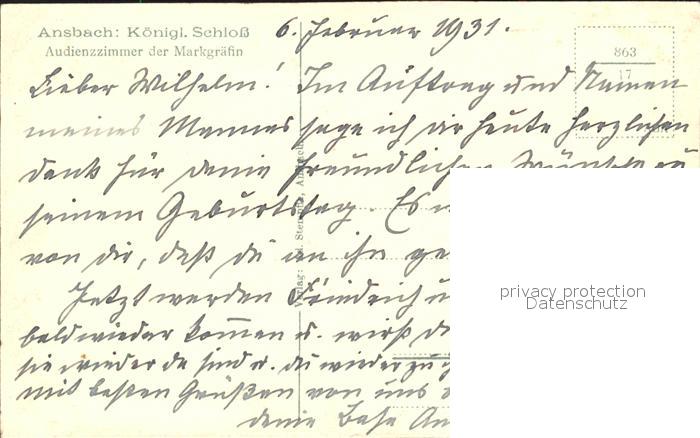 Ansbach: Königl. Schloß
Audienzzimmer der Markgräfin
6. Februar 1931.
863
17
Lieber Wilhelm! Im Auftrag und Namen
meines Mannes sage ich dir heute herzlichen
Dank für deine freundlichen Wünsche zu
seinem Geburtstag. Es
von dir, daß du an ihn ge
Jetzt werden Friedrich u
bald wieder kommen u. wirst
sie wieder da sind u. du wieder zu
mit besten Grüßen von uns
deine Base An
privacy protection
Datenschutz